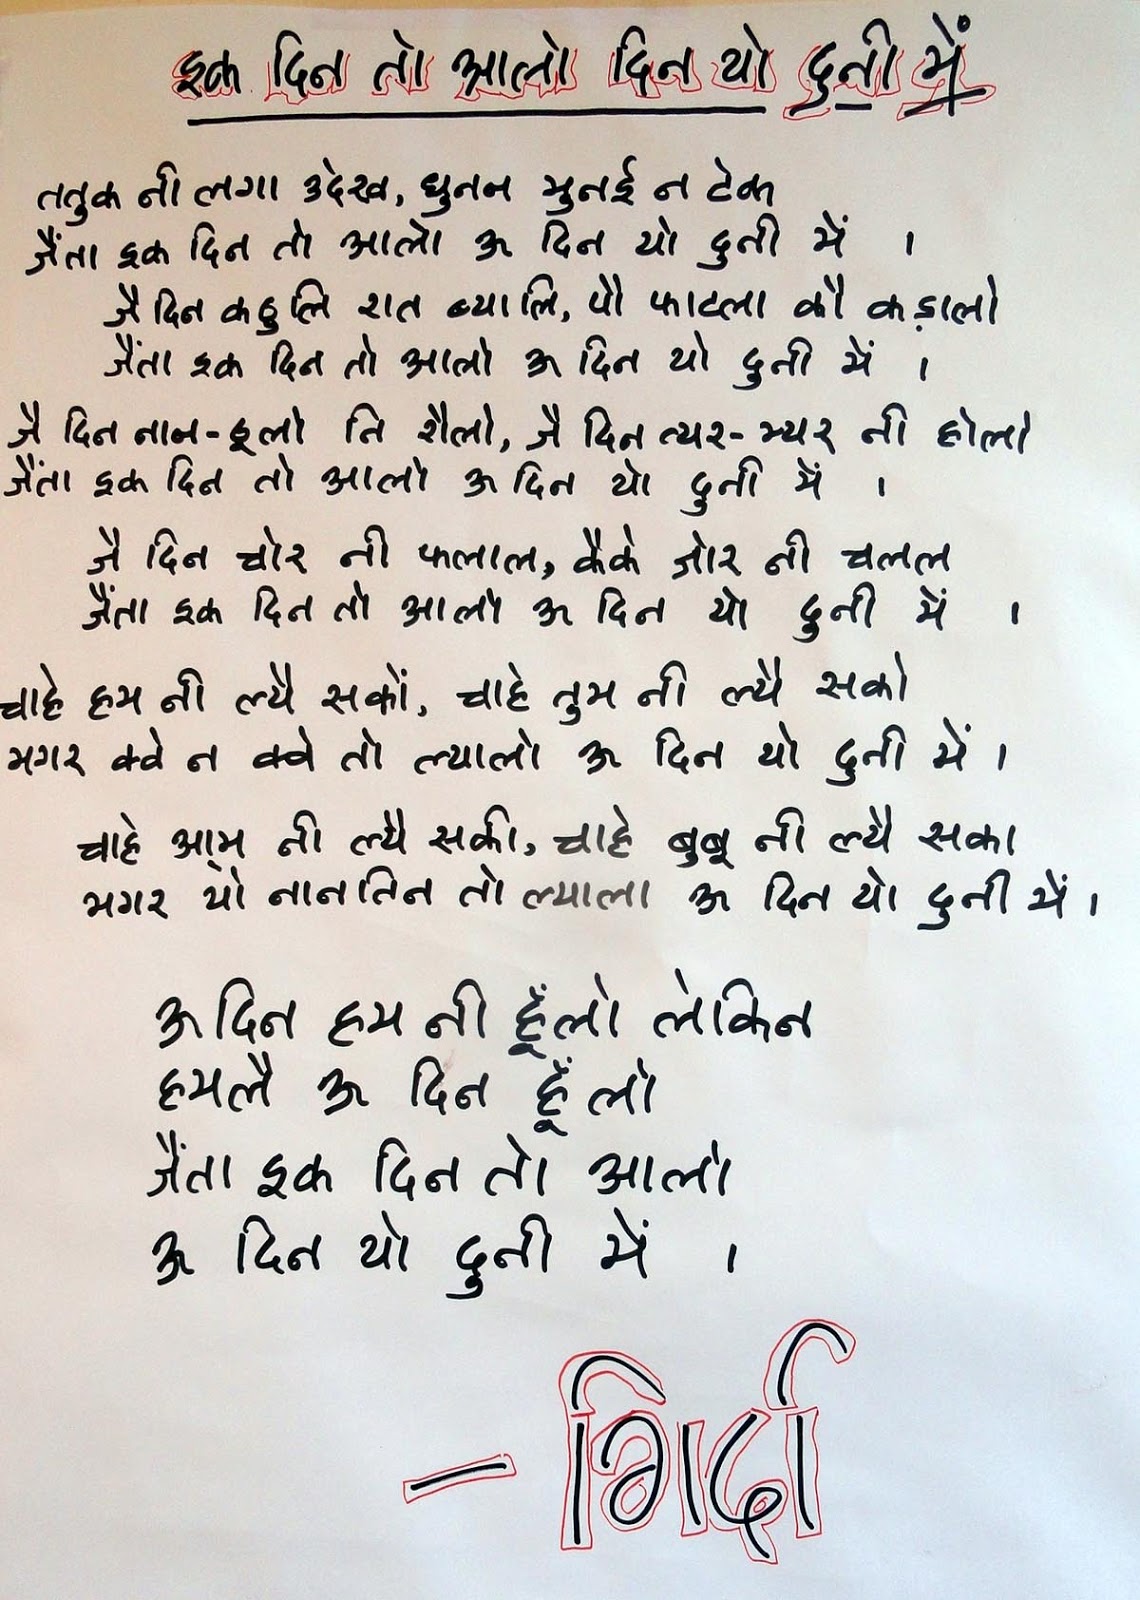 इक दिन तो आलो दिन यो दुनी में
ततुक नी लगा उदेख, घुनन मुनई न टेक
जैंता इक दिन तो आलो ऊ दिन यो दुनी में ।
जै दिन कठुलि रात ब्यालि, पौ फाटला कौ कड़ालो
जैंता इक दिन तो आलो ऊ दिन यो दुनी में ।
जै दिन नान-ठूलो नि रौलो, जै दिन त्यर-म्यर नी होलो
जैंता इक दिन तो आलो ऊ दिन यो दुनी में ।
जै दिन चोर नी फलाल, कैके जोर नी चलल
जैंता इक दिन तो आलो ऊ दिन यो दुनी में ।
चाहे हम नी ल्यै सकों, चाहे तुम नी ल्यै सको
मगर क्वे न क्वे तो ल्यालो ऊ दिन यो दुनी में ।
चाहे आम नी ल्यै सकी, चाहे बुबू नी ल्यै सका
मगर यो नानतिन तो ल्याला ऊ दिन यो दुनी में ।
ऊ दिन हम नी हूँलो लेकिन
हमलै ऊ दिन हूँ लो
जैंता इक दिन तो आलो
ऊ दिन यो दुनी में ।
– गिर्दा